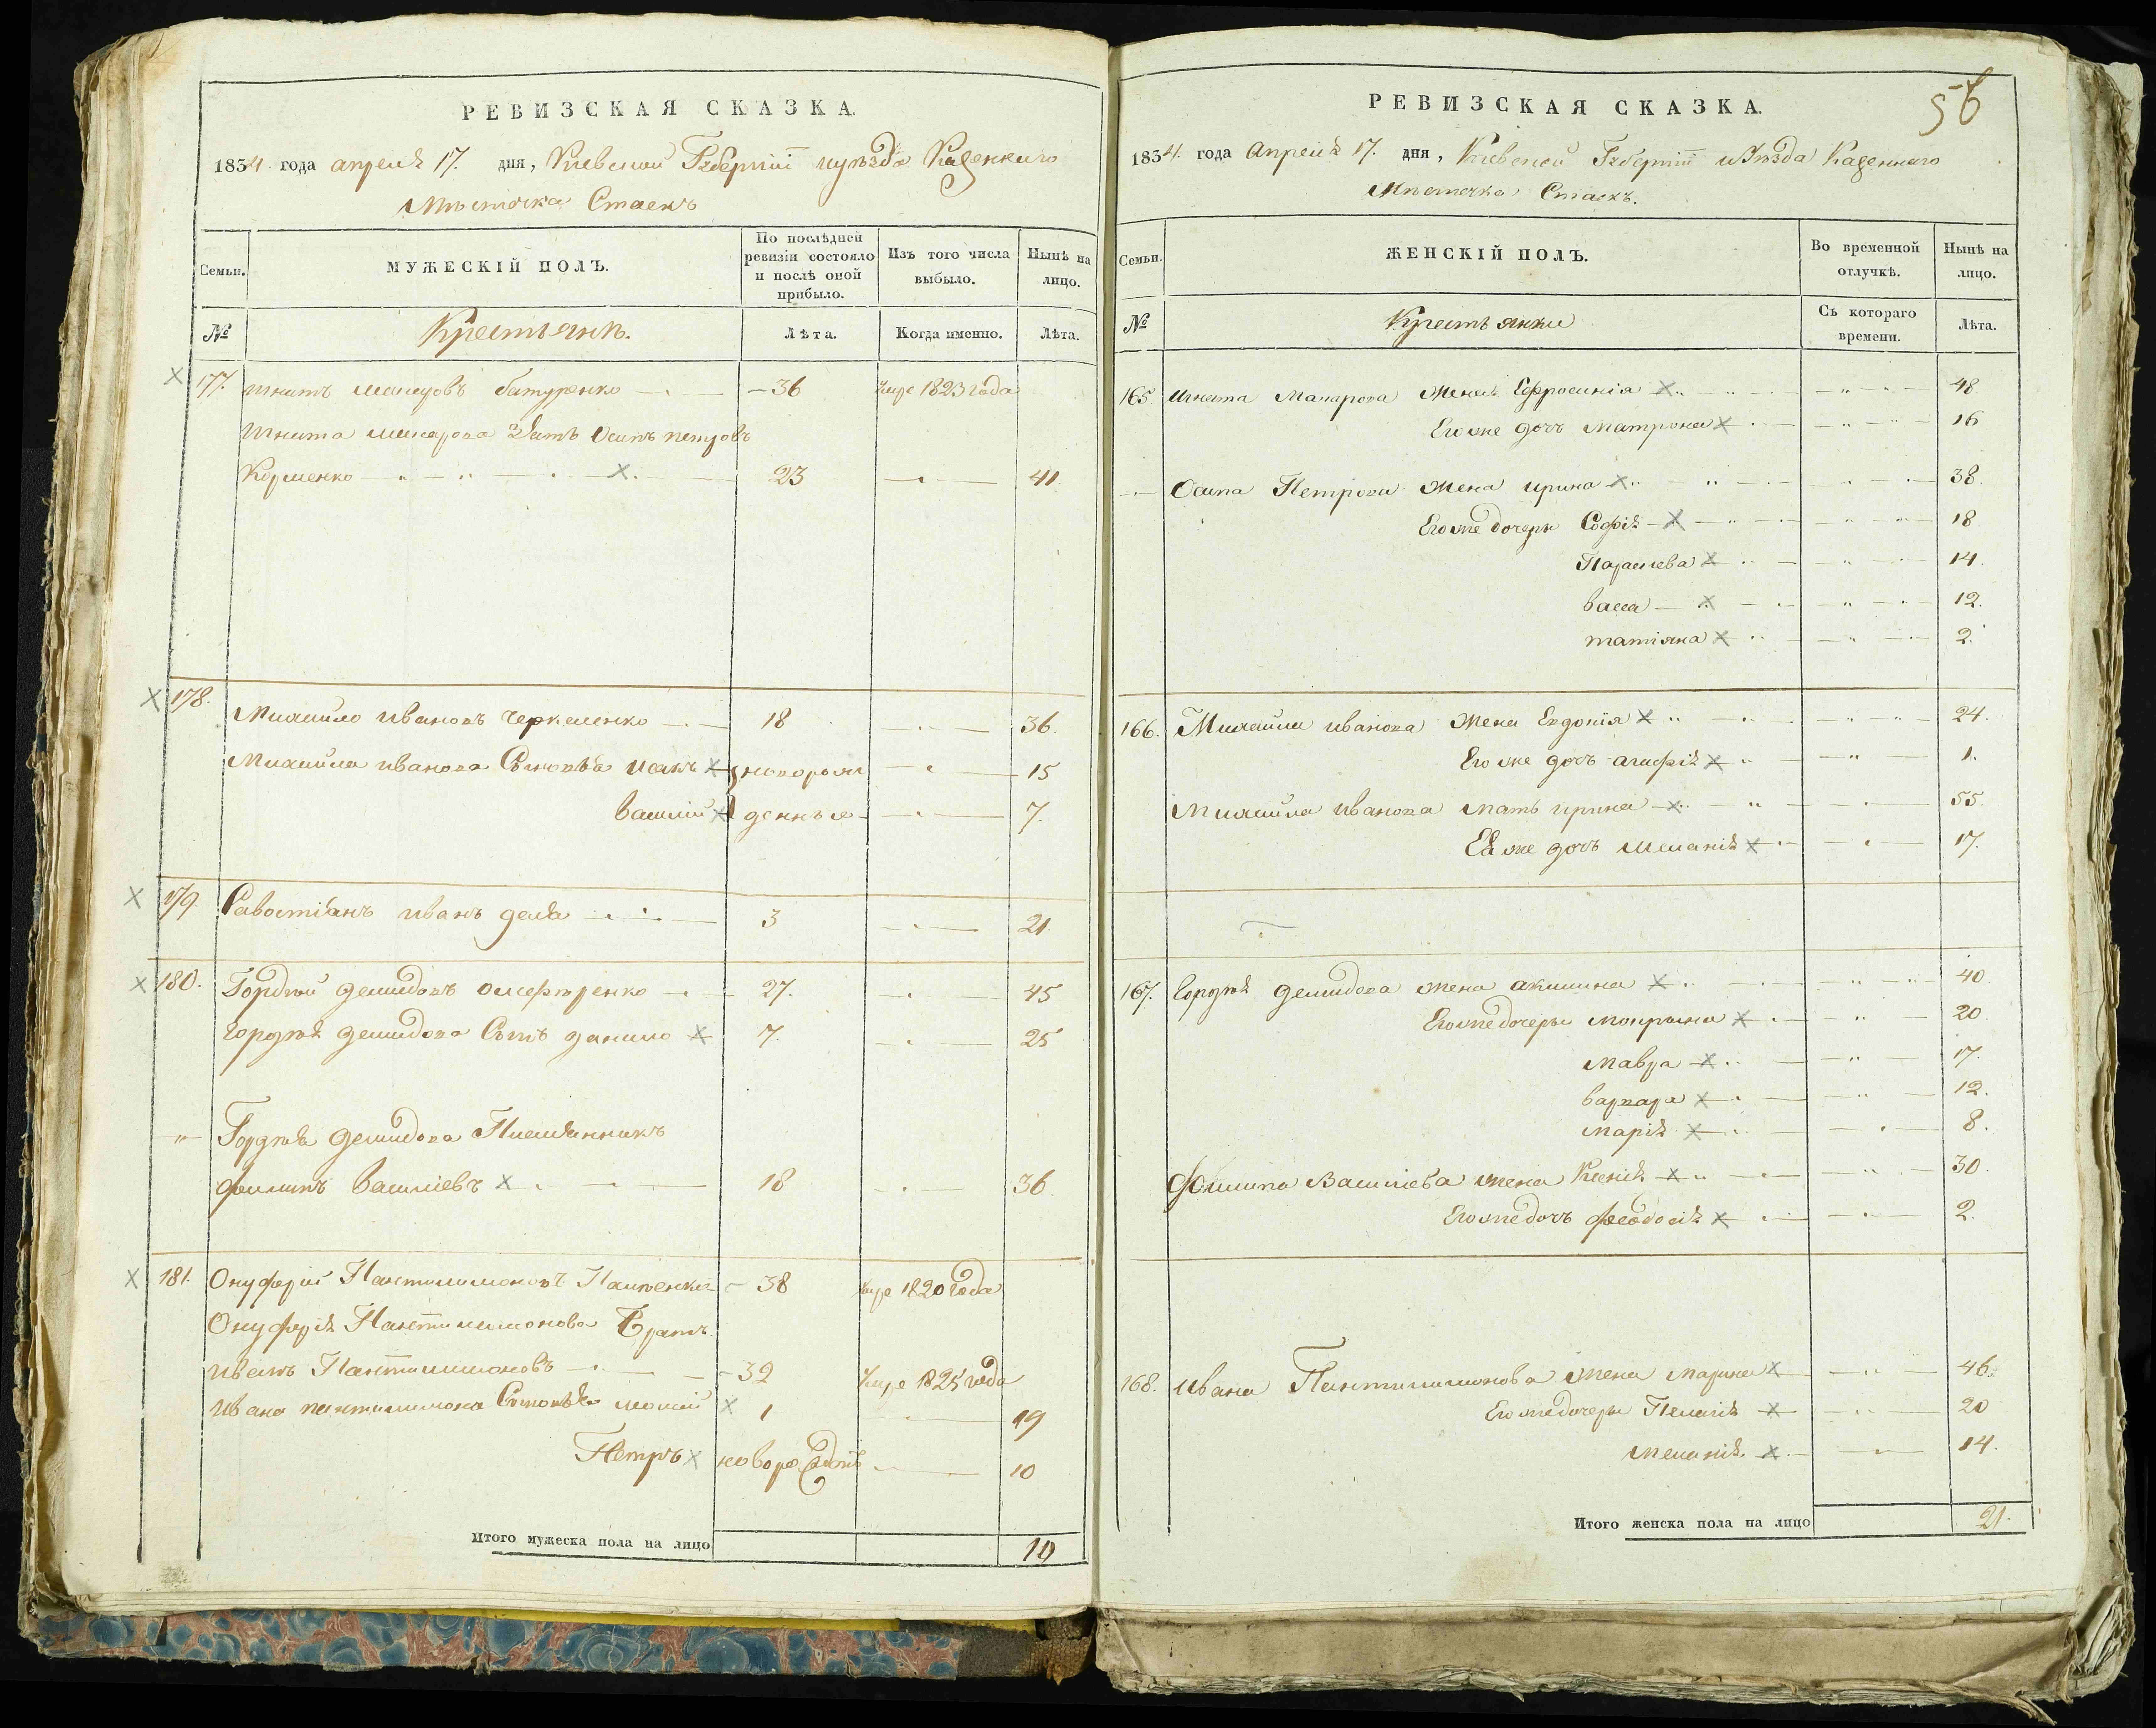 РЕВИЗСКАЯ СКАЗКА.
1834 года апреля 17. дня, Киевской Губернiи и уѣзда Казенного
Мѣстечка Стаекъ
Семьи.
МУЖЕСКІЙ ПОЛЪ.
По послѣдней ревизіи состояло и послѣ оной прибыло.
Изъ того числа выбыло.
Нынѣ на лицо.
№
Крестьянъ.
Лѣта.
Когда именно.
Лѣта.
177. Игнатъ Макаровъ батуренко 36 умре 1823 года
Игната макарова Зять Осипъ петровъ
Корженко 23 41
178. Михайло ивановъ черкаленко 18 36.
Михайла иванова Сыновья исакъ новорож 15
василiй денныя 7.
179. Савостiанъ иванъ 3 21.
180. Гордѣй демидовъ 27. 45
гордѣя демидова Сынъ данило 7. 25
" Гордѣя демидова Племянникъ
филипъ василiевъ 18 36.
181. Онуфрiй Пантилимоновъ 38 умре 1820 года
Онуфрiя Пантилимонова Братъ
иванъ Пантилимоновъ 32 умре 1825 года
ивана пантилимонова Сыновья 1 19
Петръ новорождѣн 10
Итого мужеска пола на лицо 10
56
РЕВИЗСКАЯ СКАЗКА.
1834. года Апреля 17. дня, Киевской Губернiи и Уѣзда Казенного
Мѣстечка Стаекъ.
Семьи.
ЖЕНСКІЙ ПОЛЪ.
Во временной отлучкѣ.
Нынѣ на лицо.
№
Крестьянки
Съ котораго времени.
Лѣта.
165. игната Макарова Жена Ефросинiя 48.
Его же дочь Матрона 16
Осипа Петрова Жена ирина 38.
Его же дочери Софiя 18
Параскева 14.
васса 12.
татiяна 2.
166. Михайла иванова Жена Евдокiя 24.
Его же дочь агафiя 1.
Михайла иванова мать ирина 55.
Ея же дочь меланiя 17.
167. Гордѣя демидова жена акилина 40
Его же дочери мокрына 20.
мавра 17.
варвара 12.
марiя 8.
Филипа Василiева жена Ксенiя 30.
Его же дочь феодосiя 2.
168. ивана Пантилимонова жена марина 46.
Его же дочери Пелагiя 20
меланiя. 14.
Итого женска пола на лицо 21.